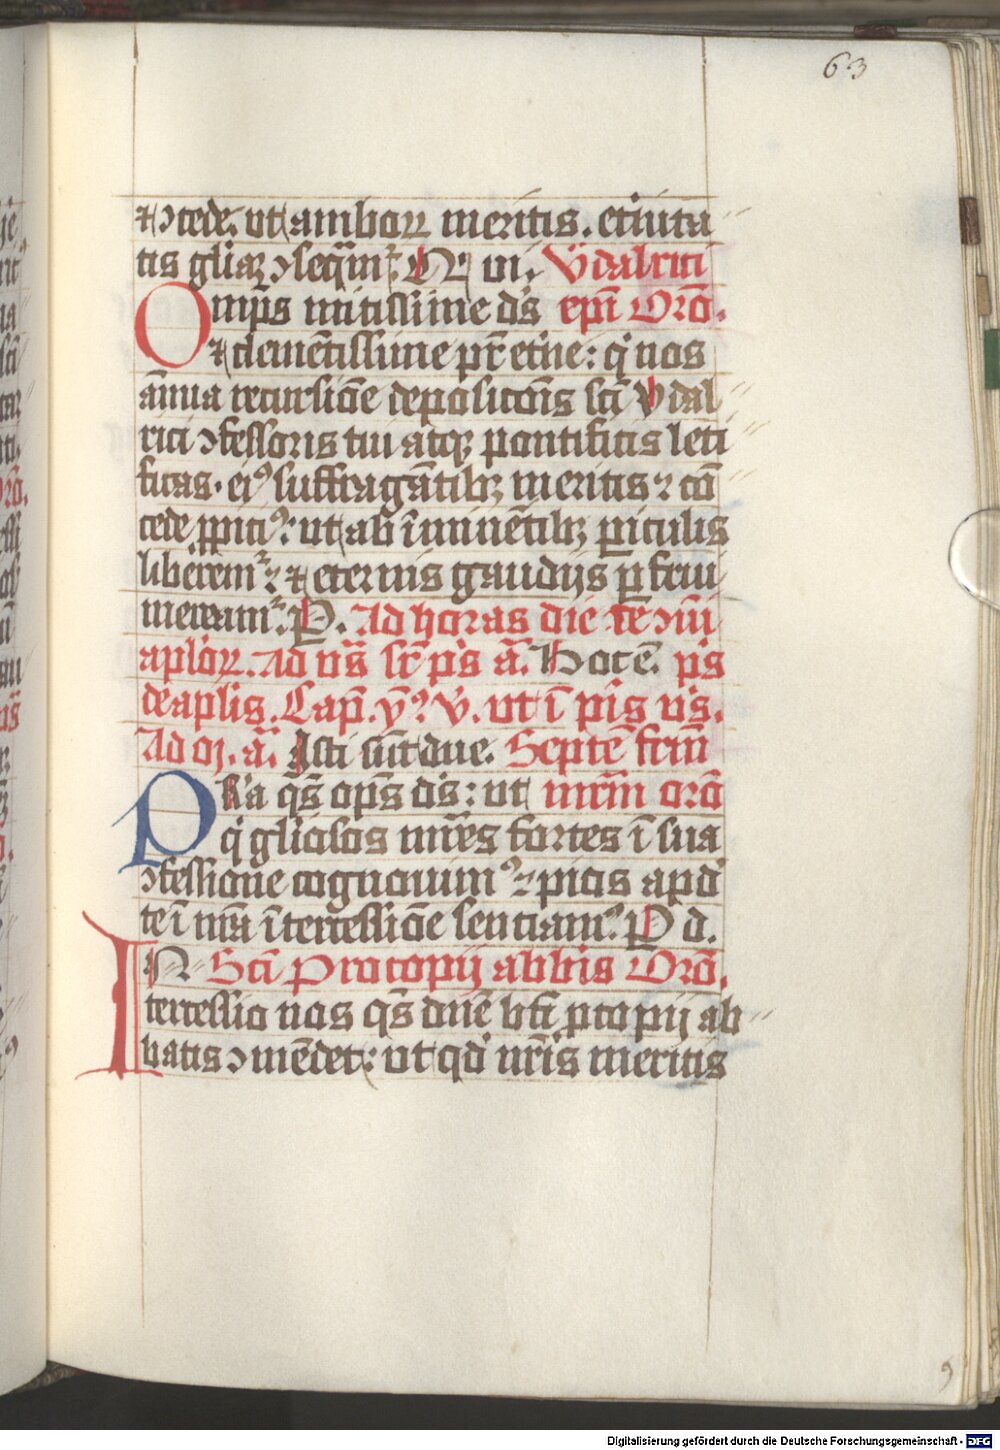 63
⁊ ꝯcede. ut amboꝝ meritis. et̾iuta
tis gl̄iaꝫ ꝯseqͣm᷑. Q̇ ui. Vdalrici
Omp̄s mitissime dˢs ep̄i Orō.
⁊ clemētissime pr̄ et̾ne: q̇ nos
ānua recursiōe deposicōis sc̄i Vdal
rici ꝯfessoris tui atqꝫ pontificis leti
ficas. eiꝰ suffragātibꝫ meritis ⁊ cō
cede ꝓpiciꝰ: ut ab īminētibꝫ ꝑiculis
liberem᷑: ⁊ eternis gaudijs ꝑfrui
meream᷑. P. Ad horas die
aploꝝ. Ad vs̄ a. Hoc ē. pˢ
de aplis. Cap̄. ut ī pⁱs vs̄.
Ad a. Isti sūt due. Septē frm̄
Pra qs̄ op̄s ds̄: ut mr̄m orō
q̇ gl̄iosos mr̄es fortes ī sua
ꝯfessione cognouimꝰ: pios apd̄
te ī nr̄a ītercessiōe senciamꝰ. P d.
IN Sc̄i Procopij abbis Orō.
tercessio nos qs̄ dn̄e bt̄i ꝓcopij ab
batis ꝯmēdet: ut qd̄ nr̄is meritis
9
Digitalisierung gefördert durch die Deutsche Forschungsgemeinschaft - DFG